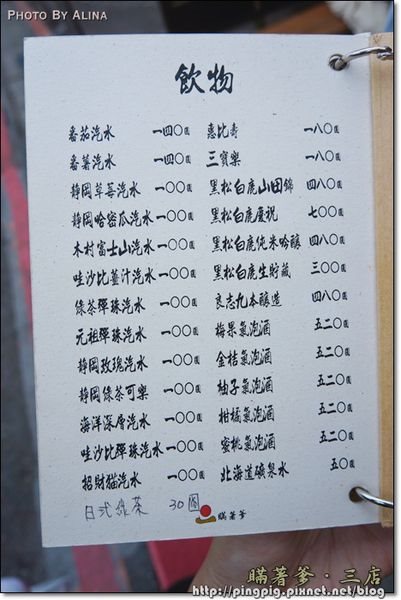 PHOTO BY ALINA
飲物
番茄汽水 一四〇圓
番薯汽水 一四〇圓
靜岡草莓汽水 一〇〇圓
靜岡哈密瓜汽水 一〇〇圓
木村富士山汽水 一〇〇圓
哇沙比薑汁汽水 一〇〇圓
綠茶彈珠汽水 一〇〇圓
元祖彈珠汽水 一〇〇圓
靜岡玫瑰汽水 一〇〇圓
靜岡綠茶可樂 一〇〇圓
海洋深層汽水 一〇〇圓
哇沙比彈珠汽水 一〇〇圓
招財貓汽水 一〇〇圓
日式綠茶 30圓
惠比壽 一八〇圓
三寶樂 一八〇圓
黑松白鹿山田錦 四八〇圓
黑松白鹿慶祝 七〇〇圓
黑松白鹿純米吟釀 四八〇圓
黑松白鹿生貯藏 三〇〇圓
良志久本釀造 四八〇圓
梅果氣泡酒 五二〇圓
金桔氣泡酒 五二〇圓
柚子氣泡酒 五二〇圓
柑橘氣泡酒 五二〇圓
蜜桃氣泡酒 五二〇圓
北海道礦泉水 五〇圓
瞞著爹
瞞著爹·三店
http://pingpig.pixnet.net/blog